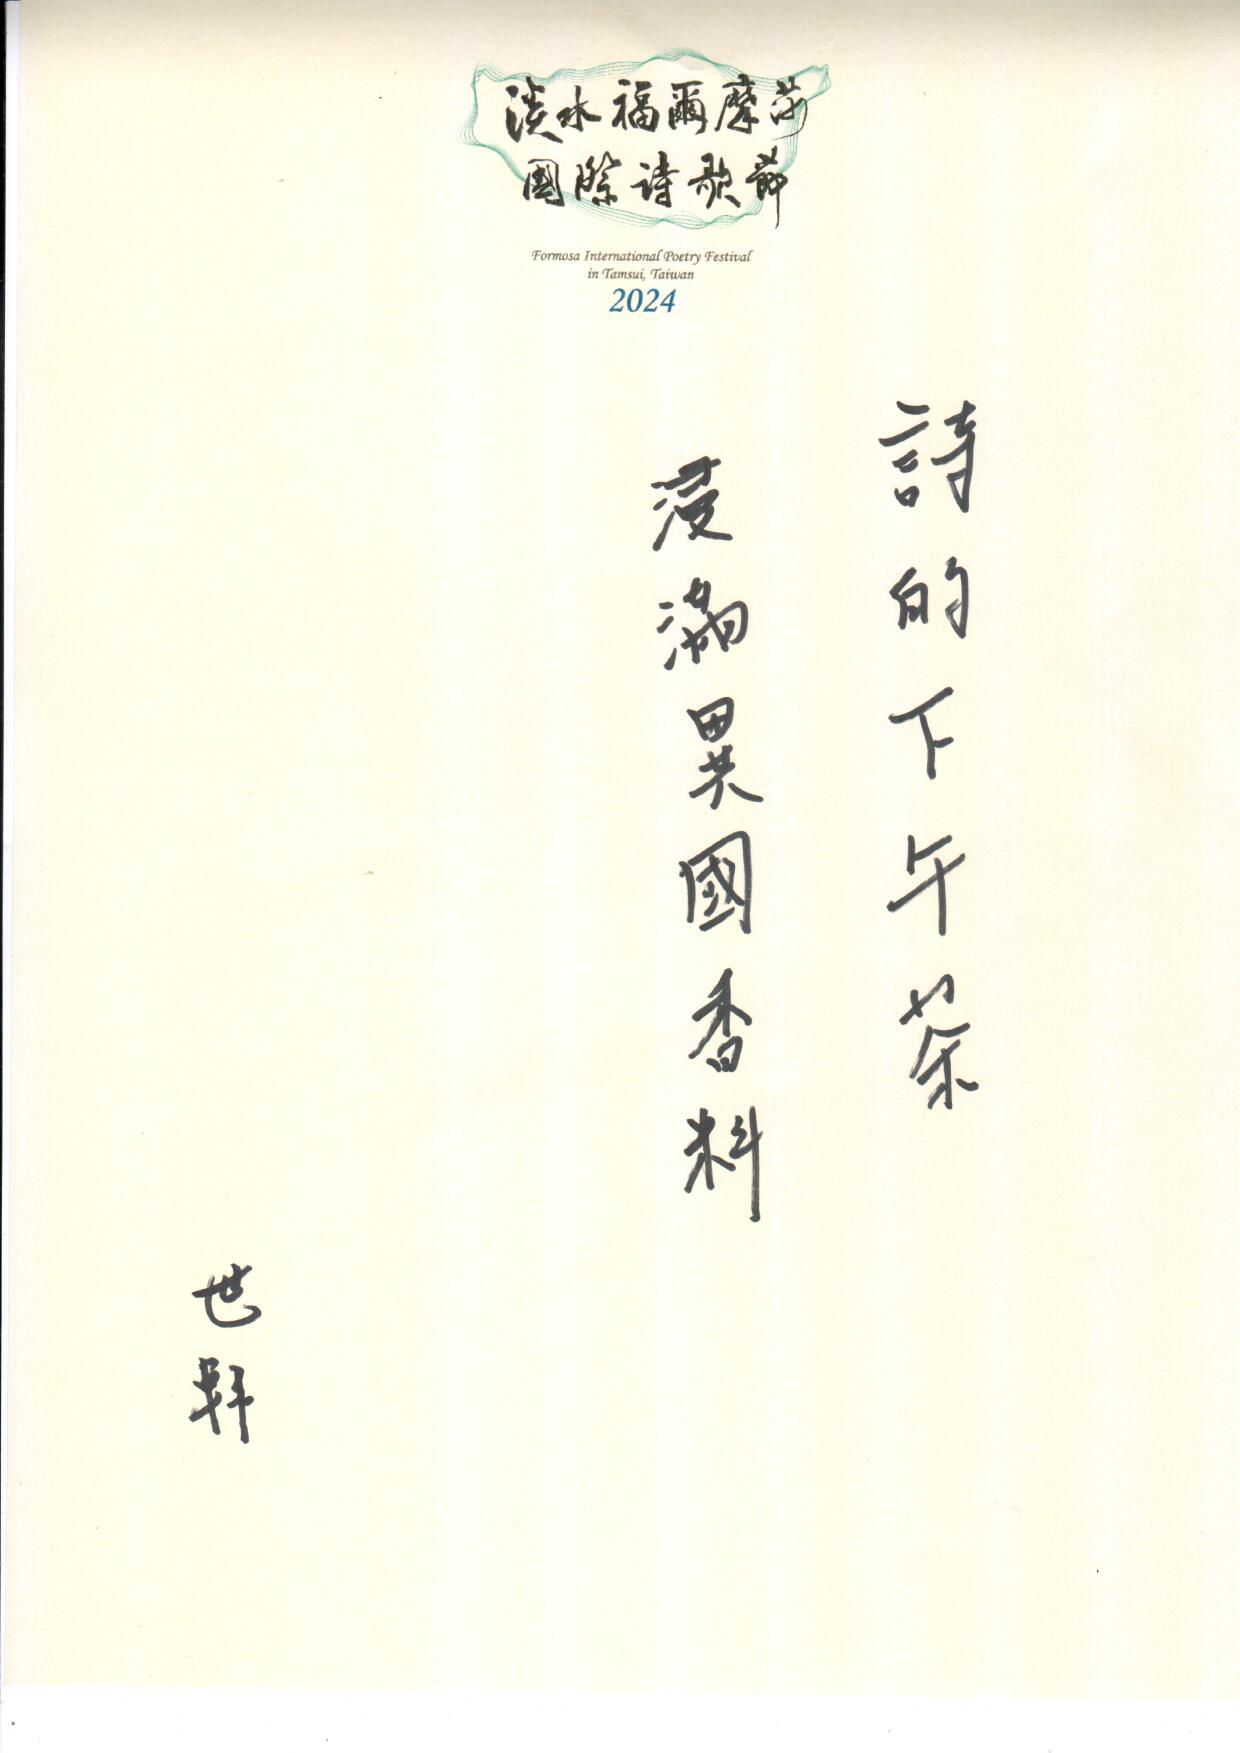 淡水福爾摩莎
國際詩歌節
Formosa International Poetry Festival
in Tamsui, Taiwan
2024
詩的下午茶
浸滿異國香料
世軒